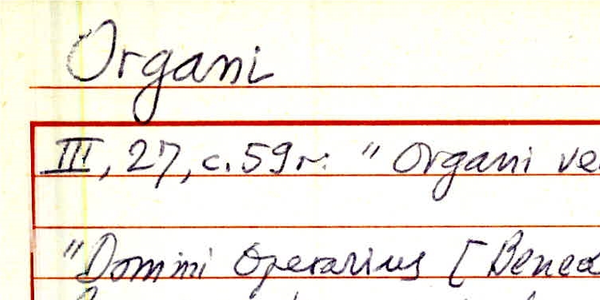 Organi
III, 27, c. 59 r. "Organi ve
"Domini Operarius [Bened